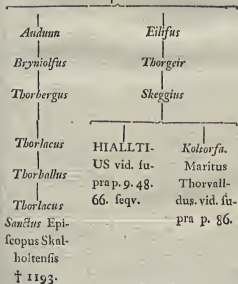 Audunn
Bryniolfus
Thorbergus
Thorlacus
Thorhallus
Thorlacus
Sanctus Epi-
ſcopus Skal-
holtenſis
† 1193.
Eilifus
Thorgeir
Skeggius
HIALLTI-
US vid. ſu-
pra p. 9. 48.
66. ſeqv.
Koltorfa.
Maritus
Thorvall-
dus. vid. ſu-
pra p. 86.